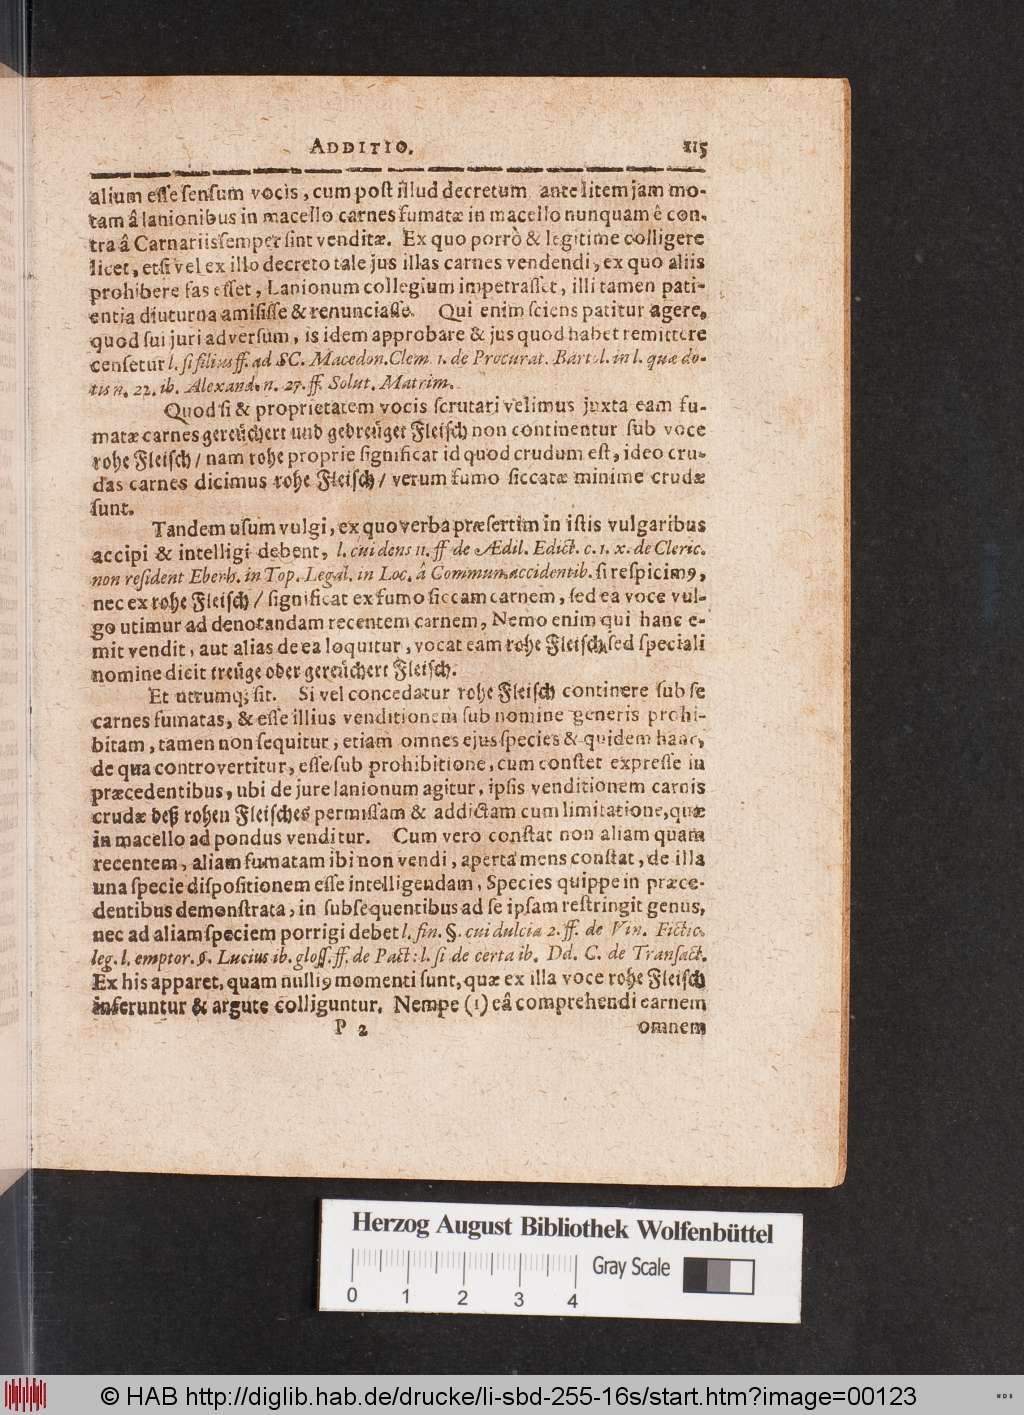 ADDITIO. 115
alium esse sensum vocis, cum post illud decretum ante litem jam mo-
tam â lanionibus in macello carnes fumatæ in macello nunquam ê con-
tra â Carnariis semper sint venditæ. Ex quo porrò & legitime colligere
licet, etsi vel ex illo decreto tale jus illas carnes vendendi, ex quo aliis
prohibere fas esset, Lanionum collegium impetrasset, illi tamen pati-
entia diuturna amisisse & renunciasse. Qui enim sciens patitur agere,
quod sui juri adversum, is idem approbare & jus quod habet remittere
censetur l. si filius ff. ad SC. Macedon. Clem. 1. de Procurat. Bartol. in l. quæ do-
tis n. 22. ib. Alexand. n. 27. ff. Solut. Matrim.
Quod si & proprietatem vocis scrutari velimus juxta eam fu-
matæ carnes gereüchert und gedreüget Fleisch non continentur sub voce
rohe Fleisch / nam rohe proprie significat id quod crudum est, ideo cru-
das carnes dicimus rohe Fleisch / verum fumo siccatæ minime crudæ
sunt.
Tandem usum vulgi, ex quo verba præsertim in istis vulgaribus
accipi & intelligi debent, l. cui dens 11. ff de Ædil. Edict. c. 1. x. de Cleric.
non resident Eberh. in Top. Legal. in Loc. â Commun. accidentib. si respicimꝰ,
nec ex rohe Fleisch / significat ex fumo siccam carnem, sed ea voce vul-
go utimur ad denotandam recentem carnem, Nemo enim qui hanc e-
mit vendit, aut alias de ea loquitur, vocat eam rohe Fleisch, sed speciali
nomine dicit treüge oder gereüchert Fleisch.
Et utrumq; sit. Si vel concedatur rohe Fleisch continere sub se
carnes fumatas, & esse illius venditionem sub nomine generis prohi-
bitam, tamen non sequitur, etiam omnes ejus species & quidem hanc,
de qua controvertitur, esse sub prohibitione, cum constet expresse in
præcedentibus, ubi de jure lanionum agitur, ipsis venditionem carnis
crudæ deß rohen Fleisches permissam & addictam cum limitatione, quæ
in macello ad pondus venditur. Cum vero constat non aliam quam
recentem, aliam fumatam ibi non vendi, aperta mens constat, de illa
una specie dispositionem esse intelligendam, Species quippe in præce-
dentibus demonstrata, in subsequentibus ad se ipsam restringit genus,
nec ad aliam speciem porrigi debet l. fin. §. cui dulcia 2. ff. de Vin. Fictic.
leg. l. emptor. §. Lucius ib. gloss. ff. de Pact: l. si de certa ib. Dd. C. de Transact.
Ex his apparet, quam nulliꝰ momenti sunt, quæ ex illa voce rohe Fleisch
inferuntur & argute colliguntur. Nempe (1) eâ comprehendi carnem
P 2 omnem
Herzog August Bibliothek Wolfenbüttel
0 1 2 3 4
Gray Scale
© HAB http://diglib.hab.de/drucke/li-sbd-255-16s/start.htm?image=00123
WDB